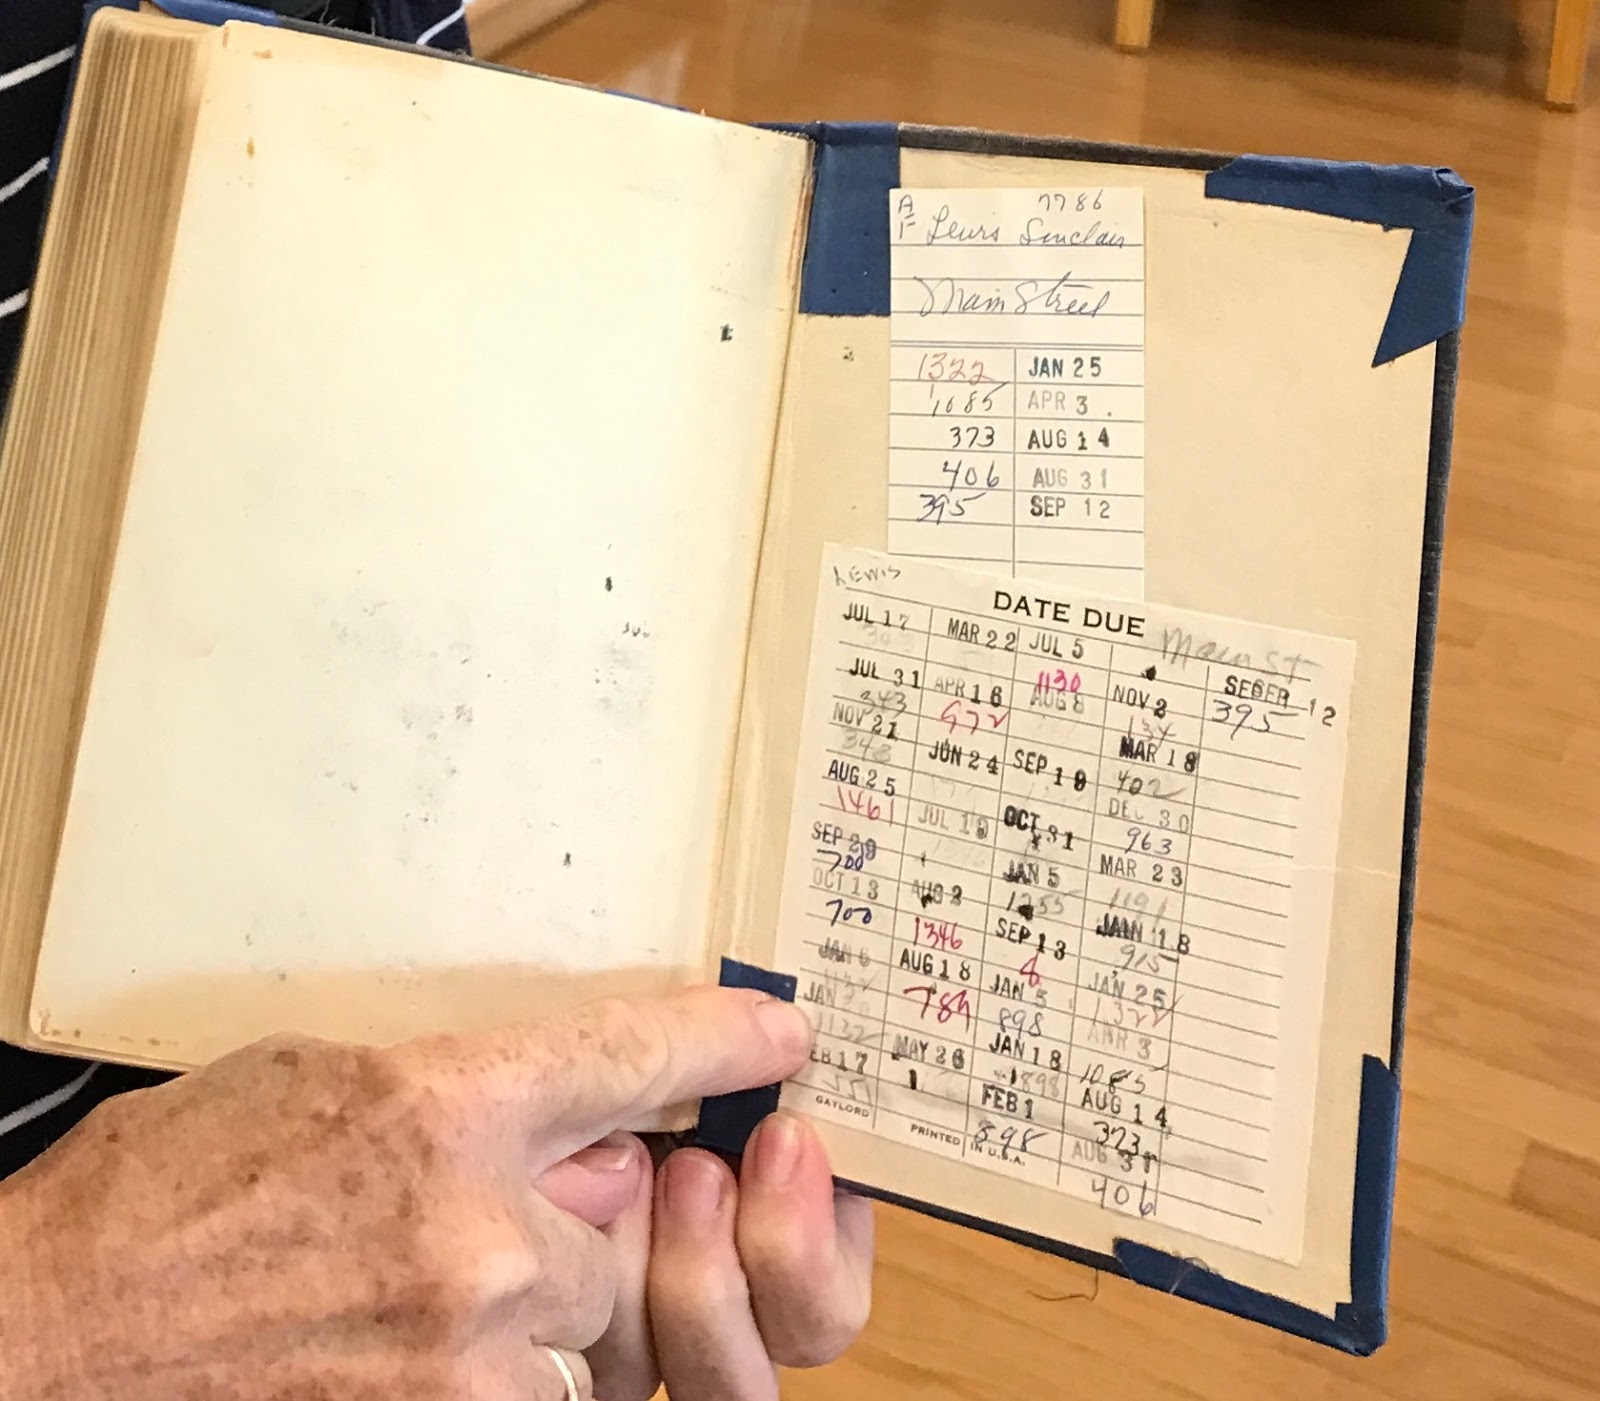 A 7786
F Lewis Sinclair
Main Street
1322 JAN 25
1085 APR 3
373 AUG 14
406 AUG 31
395 SEP 12
LEWIS
DATE DUE
Main St
JUL 17
343
JUL 31
343
NOV 21
348
AUG 25
1461
SEP 29
700
OCT 13
700
JAN 6
1132
JAN
1132
EB 17
551
MAR 22
APR 16
972
JUN 24
JUL 19
AUG 2
1346
AUG 18
789
MAY 26
JUL 5
1130
AUG 8
SEP 19
OCT 31
JAN 5
1255
SEP 13
8
JAN 5
898
JAN 18
898
FEB 1
898
NOV 2
134
MAR 18
402
DEC 30
963
MAR 23
1191
JAN 18
915
JAN 25
1322
APR 3
1085
AUG 14
373
AUG 31
406
SEP 12
395
GAYLORD
PRINTED IN U.S.A.